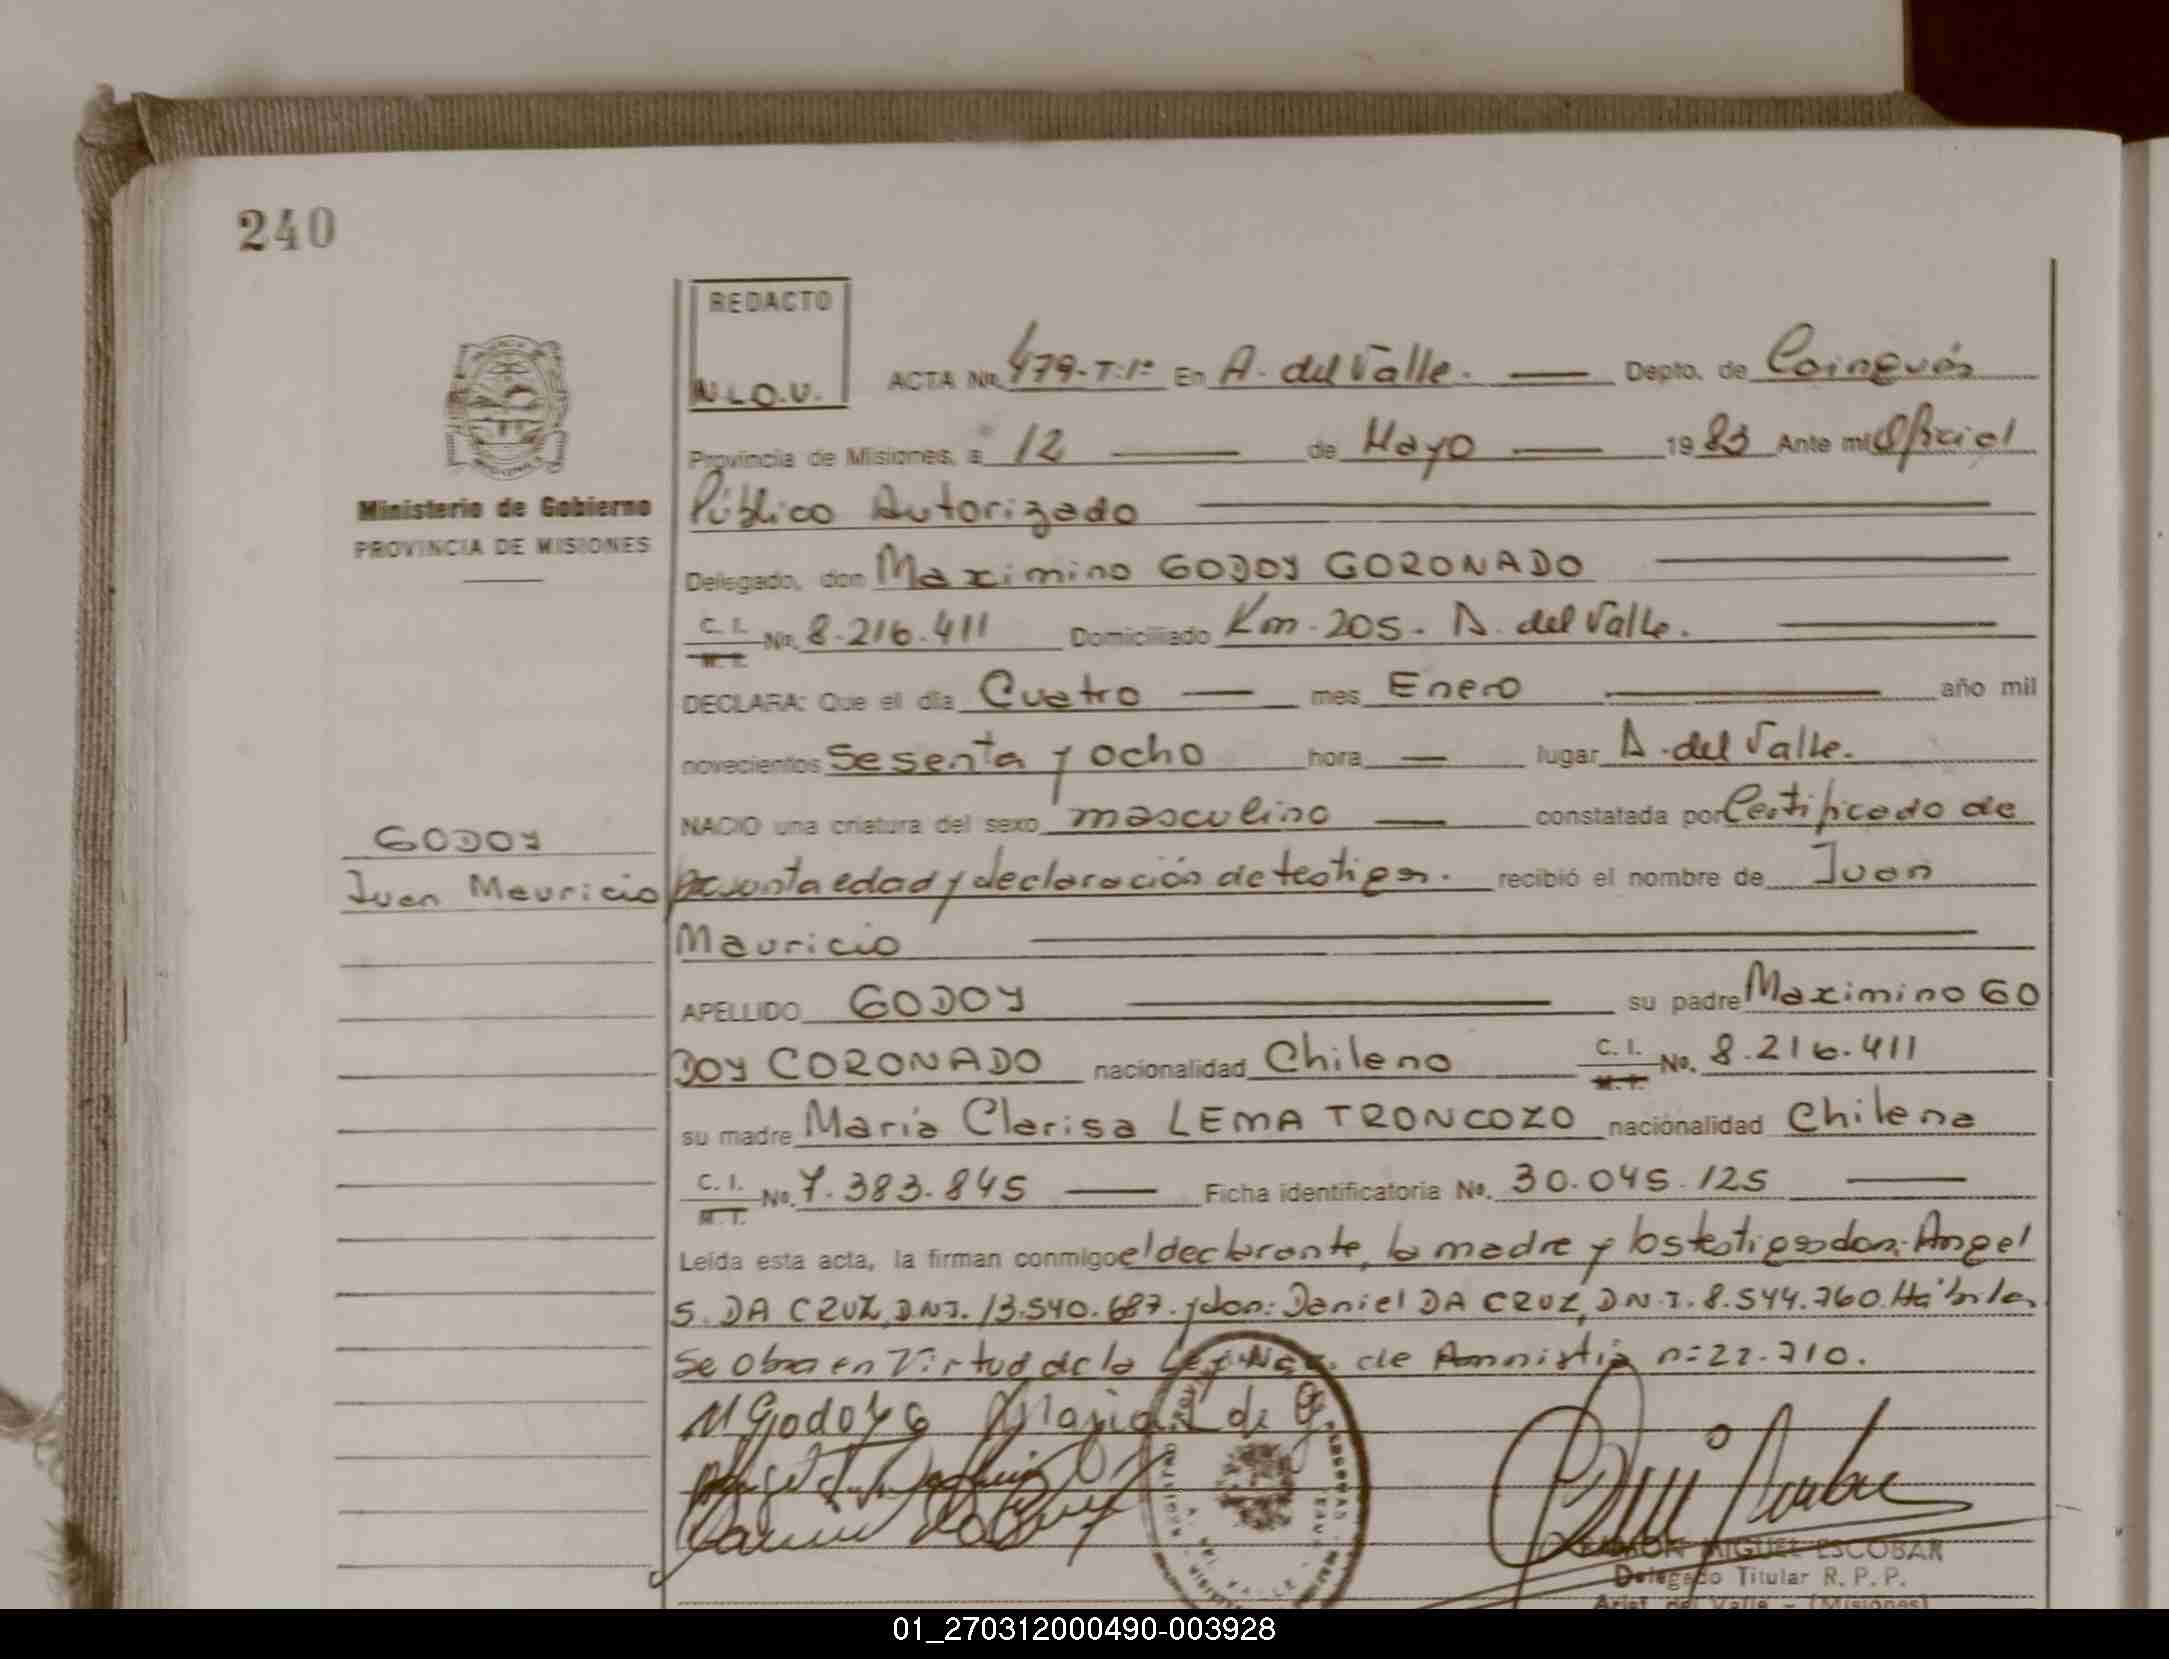 240
REDACTO
N.L.O.V.
ACTA Nº 479-T:1º En A. del Valle. Depto. de Cainguás
Provincia de Misiones, a 12 de Mayo 1983 Ante mi Oficial
Público Autorizado
Ministerio de Gobierno
PROVINCIA DE MISIONES
Delegado, don Maximino GODOY CORONADO
C. I. M. I. Nº. 8.216.411 Domiciliado Km. 205. A. del Valle.
DECLARA: Que el día Cuatro mes Enero año mil
novecientos sesenta y ocho hora lugar A. del Valle.
NACIO una criatura del sexo masculino constatada por Certificado de
GODOY
Juan Mauricio
presunta edad y declaración de testigos. recibió el nombre de Juan
Mauricio
APELLIDO GODOY su padre Maximino GO
DOY CORONADO nacionalidad Chileno C. I. M. I. Nº. 8.216.411
su madre María Clarisa LEMA TRONCOZO nacionalidad Chilena
C. I. M. I. Nº. 7.383.845 Ficha identificatoria Nº. 30.045.125
Leída esta acta, la firman conmigo el declarante, la madre y los testigos don: Angel
S. DA CRUZ, D.N.I. 13.540.687. y don: Daniel DA CRUZ, D.N.I. 8.544.760. Hábiles
Se obra en Virtud de la Ley Nac. de Amnistía n=22.710.
M Godoy C Maria L de G
RAMON MIGUEL ESCOBAR
Delegado Titular R. P. P.
Arist. del Valle - (Misiones)
01_270312000490-003928